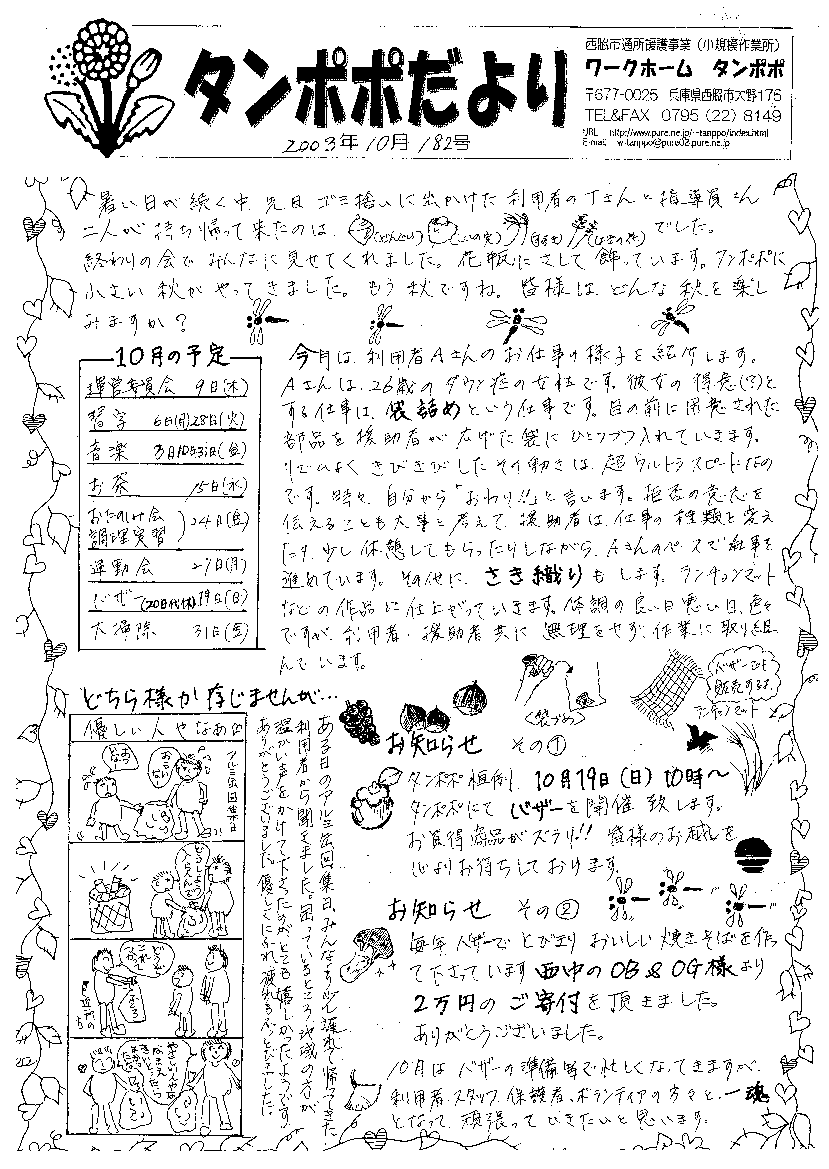 タンポポだより
2003年10月 182号
西脇市通所援護事業（小規模作業所）
ワークホーム タンポポ
〒677-0025 兵庫県西脇市大野175
TEL&FAX 0795（22）8149
URL http://www.pure.ne.jp/~tanppo/index.html
E-mail w-tanppo@pure02.pure.ne.jp
暑い日が続く中、先日ゴミ捨いに出かけた利用者のTさんと指導員さん
二人が持ち帰って来たのは、(どんぐり)でした。
終わりの会でみんなに見せてくれました。花瓶にさして飾っています。タンポポに
小さい秋がやってきました。もう秋ですね。皆様はどんな秋を楽し
みますか？
10月の予定
運営委員会 9日(木)
習字 6日(月)28日(火)
音楽 3日10日31日(金)
お茶 15日(水)
おたのしみ会
調理実習 24日(金)
運動会 27日(月)
バザー(20日代休) 19日(日)
大掃除 31日(金)
今月は、利用者Aさんのお仕事の様子を紹介します。
Aさんは、26歳のダウン症の女性です。彼女の得意(？)と
する仕事は、袋詰めという仕事です。目の前に用意された
部品を援助者が広げた袋にひとつづつ入れていきます。
リズムよくきびきびしたその動きは、超ウルトラスピードなの
です。時々、自分から「おわり!!」と言います。拒否の意志を
伝えることも大事と考えて、援助者は、仕事の種類を変え
たり、少し休憩してもらったりしながら、Aさんのペースで仕事を
進めています。その他に、さき織りもします。ランチョンマット
などの作品に仕上がっていきます。体調の良い日悪い日、色々
ですが、利用者・援助者共に無理をせず、作業に取り組
んでいます。
(袋づめ)
バザーでも
販売するよ
ランチョンマット
どちら様か存じませんが…
優しい人やなあ
アルミ缶回集日
ある日のアルミ缶回集日、みんなより少し遅れて帰ってきた
利用者から聞きました。困っているところ、地域の方が
温かい声をかけて下さったのがとても嬉しかったようです。
ありがとうございました。優しさにふれ、疲れもふっとびました!!
お知らせ その①
タンポポ恒例、10月19日(日)10時～
タンポポにてバザーを開催致します。
お買得商品がズラリ!! 皆様のお越しを
心よりお待ちしております。
お知らせ その②
毎年バザーでとびきりおいしい焼きそばを作っ
て下さっています西中のOB&OG様より
2万円のご寄付を頂きました。
ありがとうございました。
10月はバザーの準備等で忙しくなってきますが、
利用者、スタッフ、保護者、ボランティアの方々と、一魂
となって、頑張っていきたいと思います。